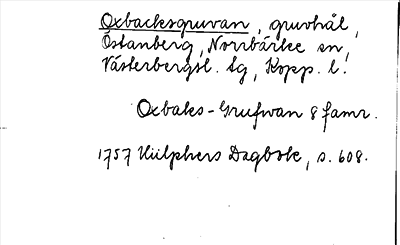 Oxbacksgruvan, gruvhål,
Östanberg, Norrbärke sn,
Västerbergsl. tg, Kopp. l.
Oxbaks-Grufwan 8 famr.
1757 Hülphers Dagbok, s. 608.